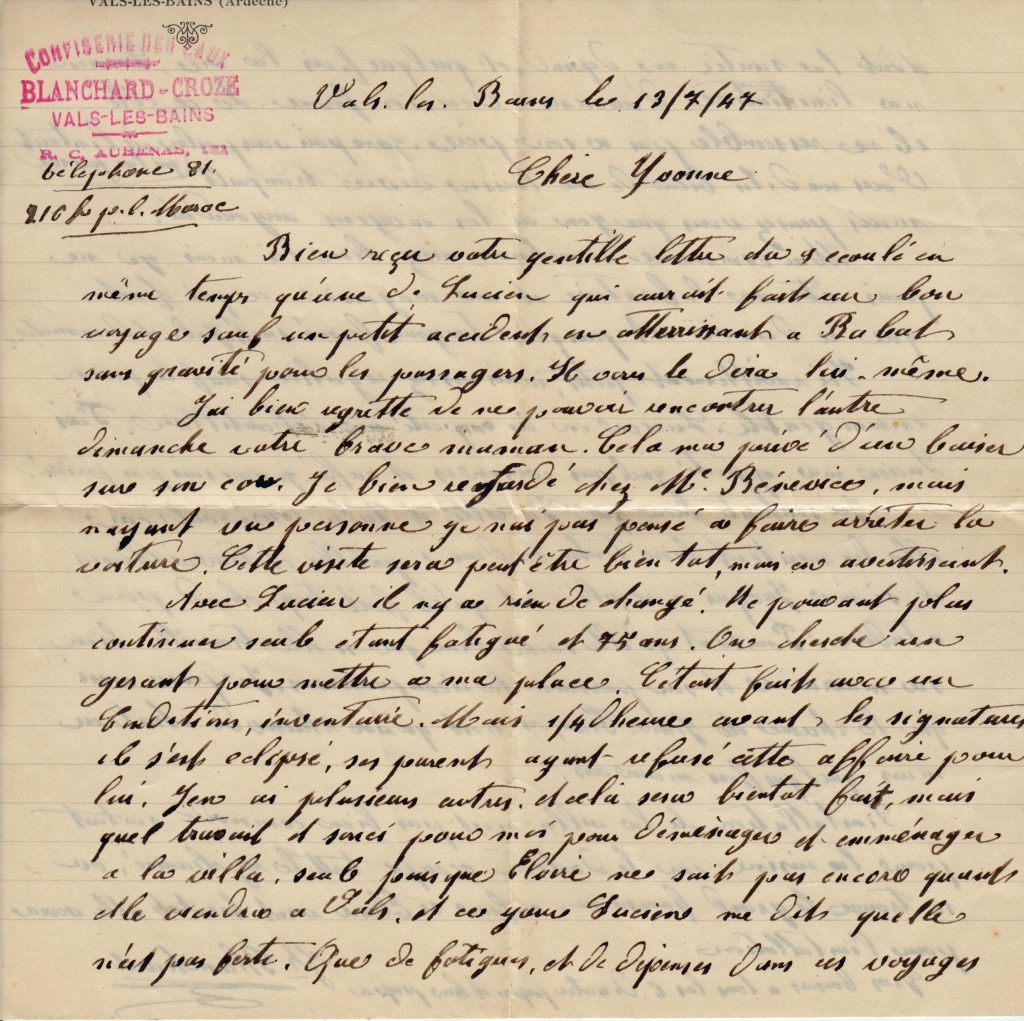 VALS-LES-BAINS (Ardèche)
CONFISERIE DES EAUX
BLANCHARD-CROZE
VALS-LES-BAINS
R. C. AUBENAS, 131
téléphone 81.
216 f p.l. Maroc
Vals. les. Bains le 13/7/47
Chère Yvonne
Bien reçu votre gentille lettre du 8 ecoulé en
même temps qu'une de Lucien qui aurait fait un bon
voyage sauf un petit accident en atterrissant a Rabat
sans gravité pour les passagers. Il vous le dira lui-même.
J'ai bien regretté de ne pouvoir rencontrer l'autre
dimanche votre brave maman. Cela ma privé d'un baiser
sure son cou. Je bien regardé chez Me. Bénévice, mais
nayant vu personne je nai pas pensé a faire arrêter la
voiture. Cette visite sera peut être bientot, mais en avertissant.
Avec Lucien il ny a rien de changé. Ne pouvant plus
continuer seul etant fatigué et 75 ans. On cherche un
gerant pour mettre a ma place. C'etait fait avec un
Conditions, inventaire. Mais 1/4 d'heure avant les signatures
il s'est eclipsé, ses parents ayant refusé cette affaire pour
lui. J'en ai plusieurs autres. et celà sera bientot fait, mais
quel travail et souci pour moi pour déménager et emménager
a la villa. seul puisque Eloire ne sait pas encore quant
elle viendra a Vals. et ce jour Lucien me dit quelle
n'est pas forte. Que de fatigues, et de dépenses dans ces voyages